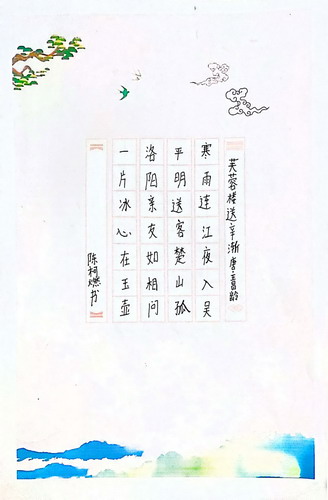 芙蓉楼送辛渐 唐
寒雨连江夜入吴
平明送客楚山孤
洛阳亲友如相问
一片冰心在玉壶
陈柯燃书